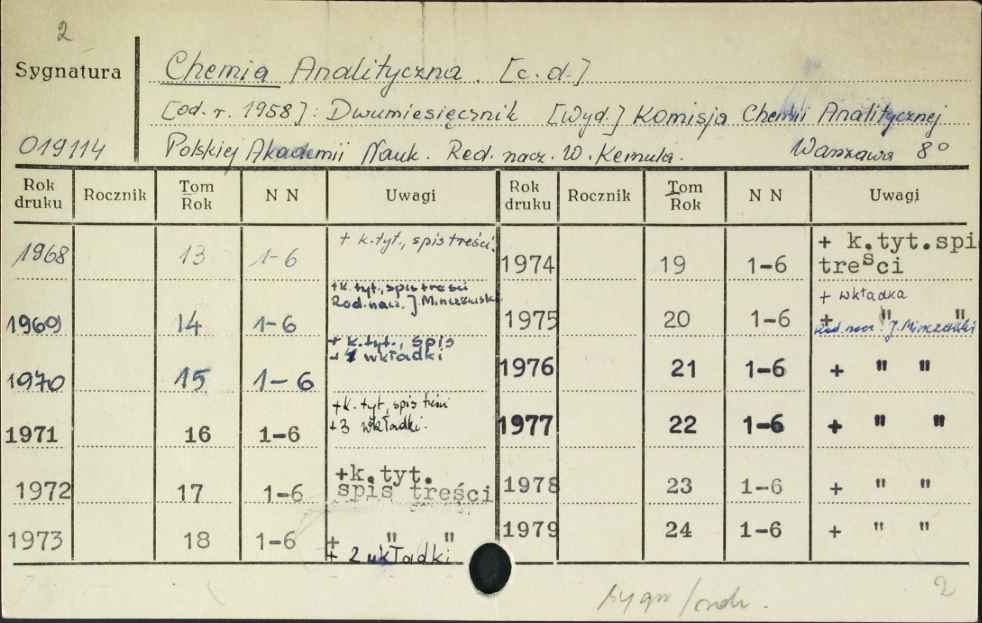 2
Sygnatura
Chemia Analityczna. [c.d.]
[od. r. 1958]: Dwumiesięcznik [Wyd.] Komisja Chemii Analitycznej
019114 Polskiej Akademii Nauk. Red. nacz. W. Kemula. Warszawa 8°
Rok druku Rocznik Tom Rok N N Uwagi Rok druku Rocznik Tom Rok N N Uwagi
1968 13 1-6 + k.tyt., spis treści.
1969 14 1-6 +k. tyt., spis treści Red. nacz. J. Minczewski
1970 15 1-6 + k.tyt., spis + 4 wkładki
1971 16 1-6 +k. tyt, spis treści +3 wkładki.
1972 17 1-6 +k.tyt. spis treści
1973 18 1-6 + " " + 2 wkładki
1974 19 1-6 + k.tyt.spi treści
1975 20 1-6 + wkładka + " " Red. nacz. J. Minczewski
1976 21 1-6 + " "
1977 22 1-6 + " "
1978 23 1-6 + " "
1979 24 1-6 + " "
2